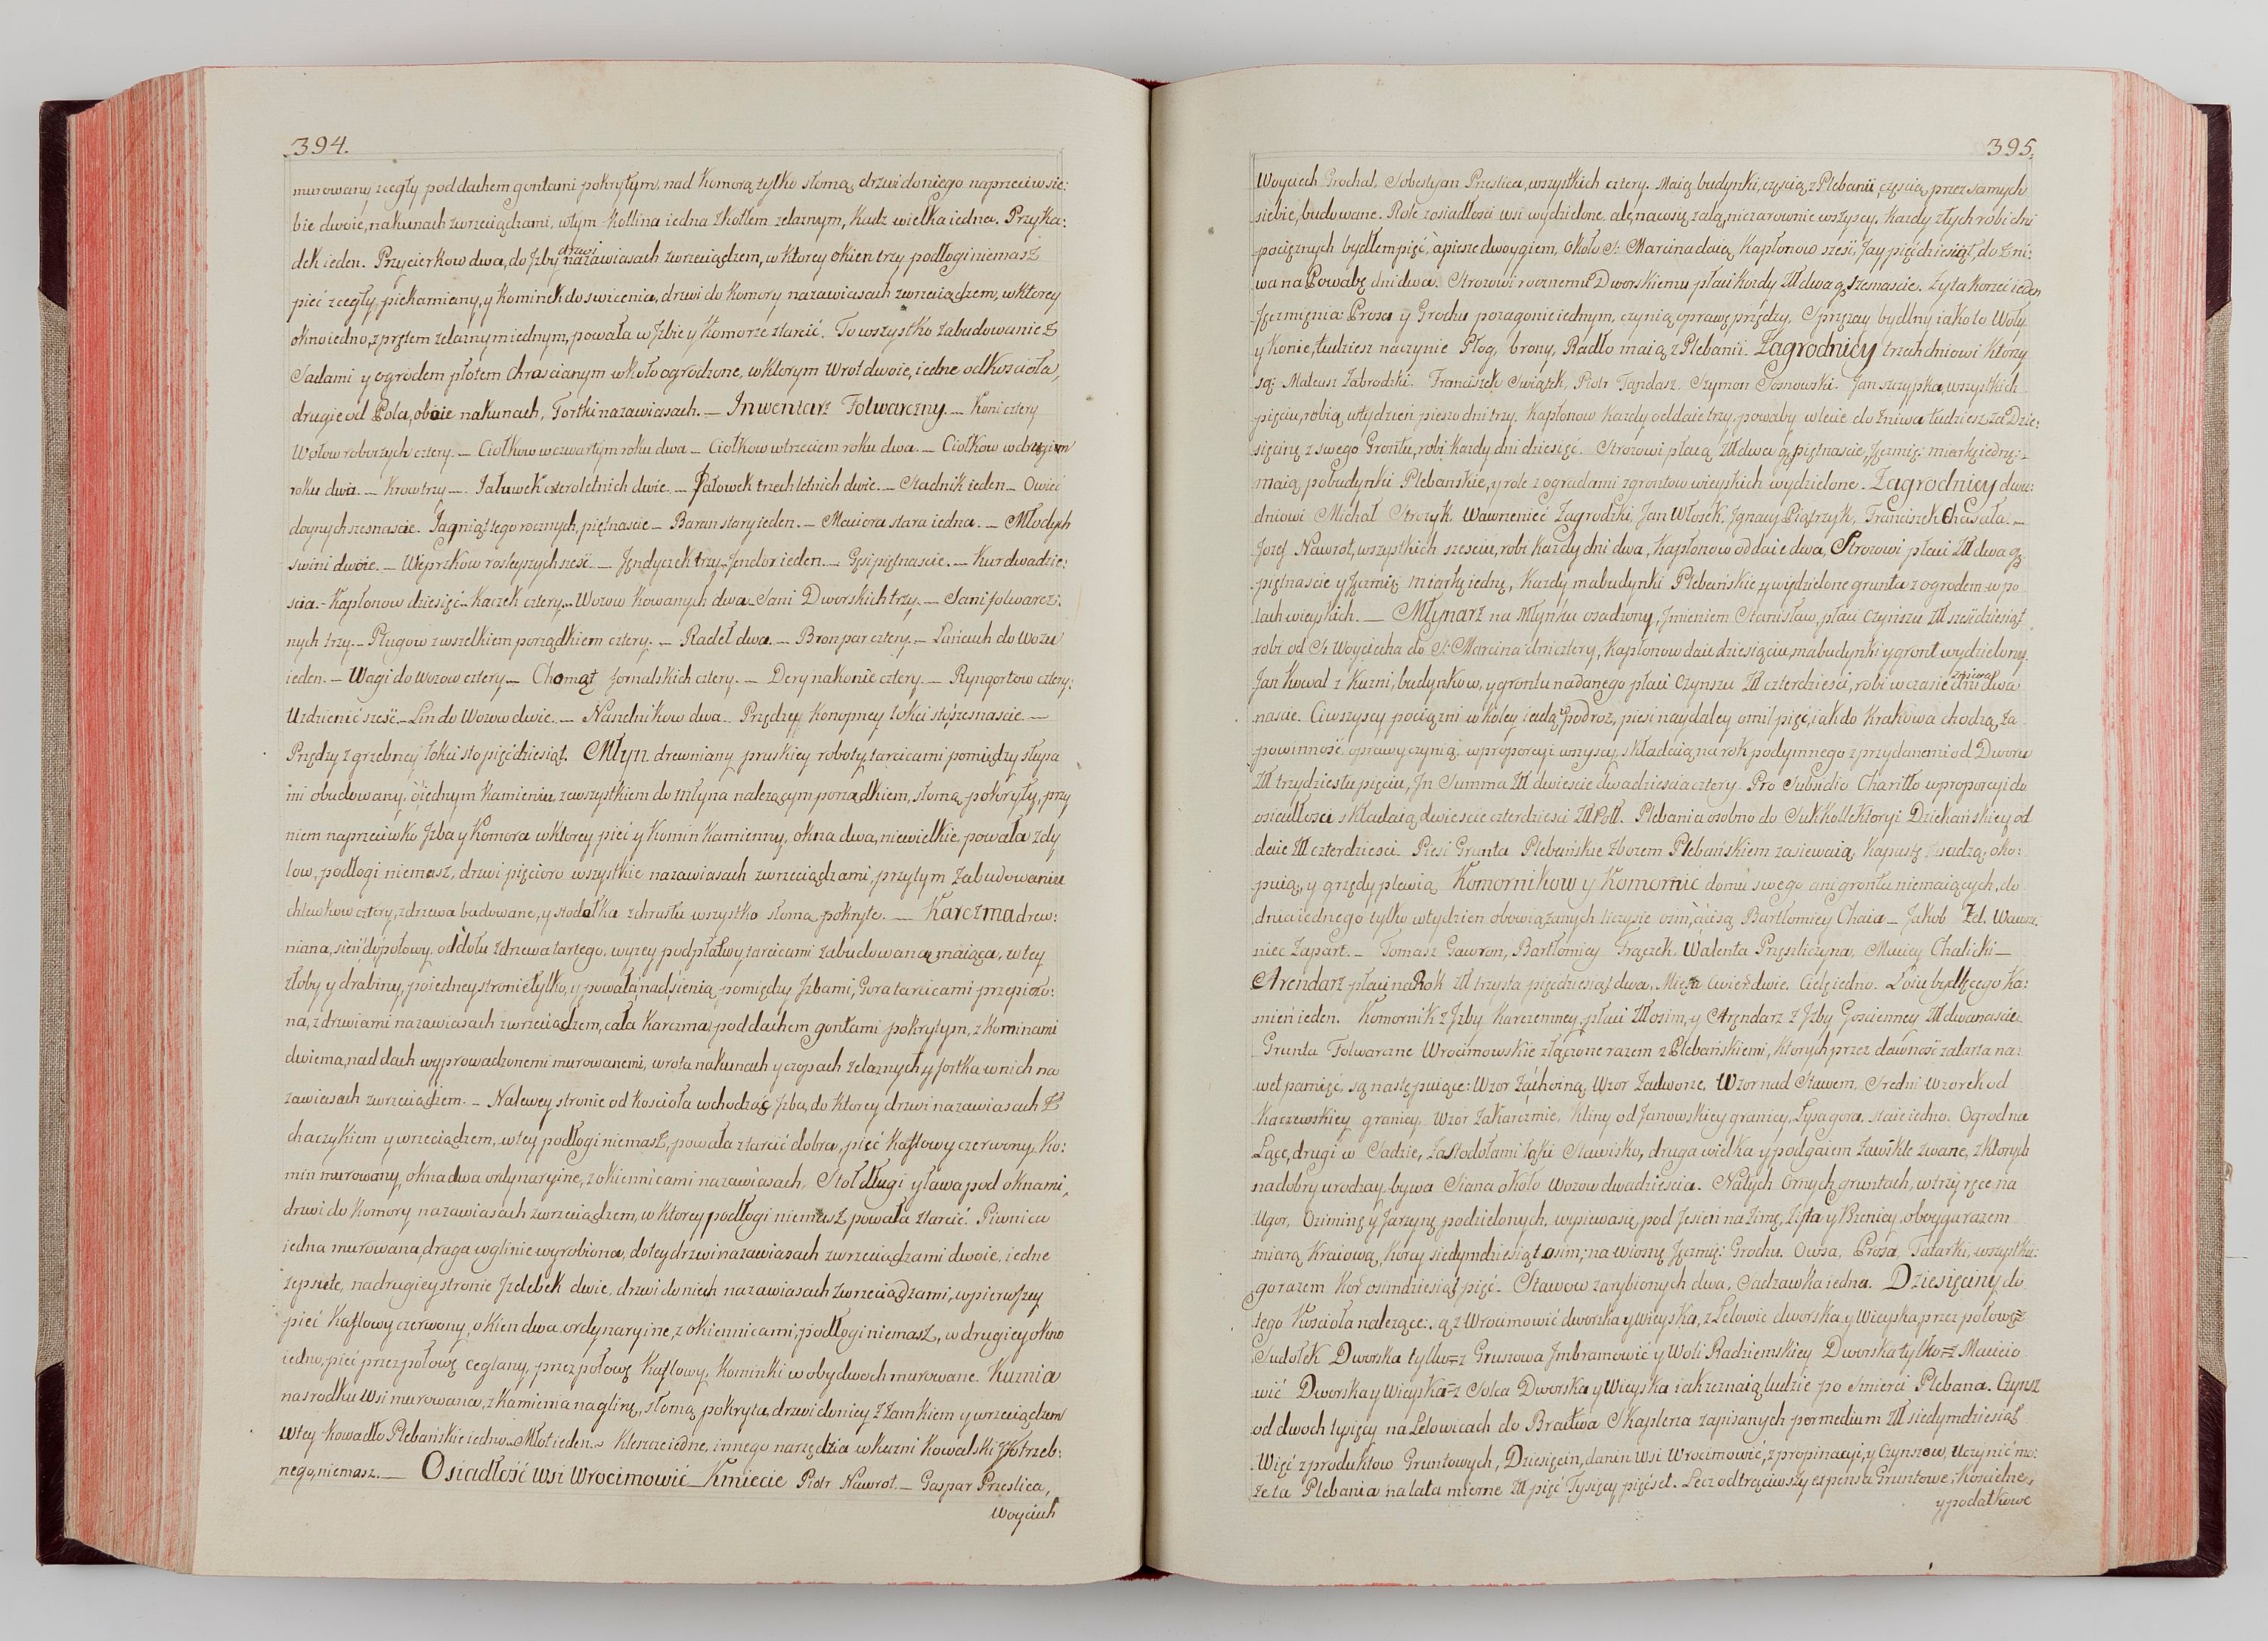 394.
murowany zcegły pod dachem gontami pokrytym, nad Komorą tylko słomą, drzwi doniego naprzeciw sie:
bie dwoie, na kunach zwrzeciądzami, wtym Kotlina iedna zkotłem zelaznym, Kadz wielka iedna. Przyka:
dek ieden. Przycierkow dwa, do Jzby drzwi nazawiasach zwrzeciądzem, w ktorey okien trzy podłogi niemasz
piec z cegły, piekarniany, y Kominek do swicenia, drzwi do Komory nazawiasach zwrzeciądzem, w ktorey
okno iedno, z prętem zelaznym iednym, powała w Jzbie y Komorze ztarcic. To wszystko Zabudowanie z
Sadami y ogrodem płotem chrascianym w koło ogrodzone, w ktorym Wrot dwoie, iedne od Koscioła,
drugie od Pola, oboie na kunach, Fortki nazawiasach. — Inwentarz Folwarczny. — Koni cztery
Wołow roboczych cztery. — Ciołkow w czwartym roku dwa — Ciołkow w trzeciem roku dwa. — Ciołkow w drugim
roku dwa. — Krow trzy. — Jałuwek czteroletnich dwie. — Jałowek trzechletnich dwie. — Stadnik ieden — Owiec
doynych szesnascie. Jagniąt tego rocznych, piętnascie — Baran stary ieden. — Maciora stara iedna. — Młodych
swini dwoie. — Wieprzkow rosleyszych szesć. — Jędyczek trzy. Jendor ieden. — Gęsi piętnascie. — Kur dwadzie:
scia. — Kapłonow dziesięć — Kaczek cztery. — Wozow Kowanych dwa — Sani Dworskich trzy. — Sani folwarcz:
nych trzy. — Pługow zwszelkiem porządkiem cztery. — Radeł dwa. — Bron par cztery. — Łancuch do Wozu
ieden. — Wagi do Wozow cztery — Chomąt fornalskich cztery. — Dery na konie cztery. — Ryngortow cztery:
Uzdzienic szesć. — Lin do Wozow dwie. — Naszelnikow dwa. Przędzy Konopney łokci sto szesnascie. —
Przędzy zgrzebney łokci sto pięćdziesiąt. Młyn drewniany pruskiey roboty, tarcicami pomiędzy słupa
mi obudowany, o iednym Kamieniu, zewszystkiem do Młyna nalezącym porządkiem, słomą pokryty, przy
niem naprzeciwko Jzba y Komora w ktorey piec y Komin Kamienny, okna dwa, niewielkie, powała z dy
low, podłogi niemasz, drzwi pięcioro wszystkie nazawiasach zwrzeciądzami, przytym Zabudowaniu
chlewkow cztery, zdrzewa budowane, y stodołka zchrustu wszystko słomą pokryte. — Karczma drew:
niana, sien do połowy od dołu zdrzewa tartego, wyzey pod płatwy tarcicami zabudowaną maiąca, w tey
żłoby y drabiny, po iedney stronie tylko, y powałą nad sienią pomiędzy Jzbami, Gora tarcicami przepierzo:
na, z drzwiami nazawiasach zwrzeciądzem, cała Karczma pod dachem gontami pokrytym, z Kominami
dwiema, nad dach wyprowadzonemi murowanemi, wrota na kunach y czopach zelaznych y fortka w nich na
zawiasach zwrzeciądzem. — Na lewey stronie od Koscioła wchodząc Jzba, do ktorey drzwi nazawiasach z
haczykiem y wrzeciądzem, w tey podłogi niemasz, powała z tarcic dobra, piec Kaflowy czerwony, Ko:
min murowany, okna dwa ordynaryine, z okiennicami nazawiasach, Stoł długi y ława pod oknami,
drzwi do Komory nazawiasach zwrzeciądzem, w ktorey podłogi niemasz powała ztarcic. Piwnica
iedna murowana, druga w glinie wyrobiona, do tey drzwi nazawiasach zwrzeciądzami dwoie, iedne
zepsute, na drugiey stronie Jzdebek dwie, drzwi do nich nazawiasach zwrzeciądzami, w pierwszey
piec Kaflowy czerwony, okien dwa, ordynaryine, z okiennicami, podłogi niemasz, w drugiey okno
iedno, piec przez połowę ceglany, przez połowę Kaflowy, Kominki w obydwoch murowane. Kuznia
na srodku Wsi murowana, z kamienia na glinę, słomą pokryta, drzwi do niey z zamkiem y wrzeciądzem
W tey Kowadło Plebańskie iedno. Młot ieden. Kleszcze iedne, innego narzędzia w Kuzni Kowalskiey potrzeb:
nego, niemasz. — Osiadłość Wsi Wrocimowic Kmiecie Piotr Nawrot. — Gaspar Przeslica,
Woyciech
395.
Woyciech Grochal, Sobestyan Przeslica, wszystkich cztery. Maią budynki, częscią z Plebanii, częscią, przez samych
siebie, budowane. Role zosiadłosci wsi wydzielone, robi dni
pocięznych bydłem pięć, a piesze dwoygiem, około S. Marcina daią Kapłonow szesć, Jay pięćdziesiąt, do zni:
wa na Powabę dni dwa. Strozowi rocznemu Dworskiemu płaci kozdy Zł dwa g. szesnascie. Zyta korzec ieden
Jęczmienia Prosa y Grochu po zagonie iednym, czynią oprawę przędzy. Sprzęzay bydlny iako to Woły
y Konie, tudziesz naczynie Pług, brony, Radło maią z Plebanii. Zagrodnicy trzech dniowi Ktorzy
są: Mateusz Zabrodzki. Franciszek Swiązek, Piotr Tandasz, Szymon Sosnowski. Jan Szczypka, wszystkich
pięciu, robią wtydzień pieszo dni trzy. Kapłonow kazdy oddaie trzy, powaby w lecie do żniwa tudziesz za Dzie:
sięcinę z swego Grontu, robi kazdy dni dziesięć. Strozowi płacą Zł dwa g. piętnascie, Jęczmię: miarkę iednę:
maią pobudynki Plebanskie, y role z ogrodami z grontow wieyskich wydzielone. Zagrodnicy dwu:
dniowi Michał Strozyk Wawrzeniec Zagrodzki, Jan Włosek, Jgnacy Piątrzyk, Franciszek Chasała. —
Jozef Nawrot, wszystkich szesciu, robi kazdy dni dwa, Kapłonow oddaie dwa, Strozowi płaci Zł dwa g.
piętnascie y Jęczmię: miarkę iednę, Kazdy ma budynki Plebańskie y wydzielone grunta z ogrodem w po
lach wieyskich. — Młynarz na Młynku osadzony, Jmieniem Stanisław, płaci Czynszu Zł sześćdziesiąt
robi od S. Woyciecha do S. Marcina dni cztery, Kapłonow daie dziesięciu, ma budynki y gront wydzielony
Jan Kowal z Kuzni, budynkow, y grontu nadanego płaci Czynszu Zł czterdziesci, robi w czasie żniwa dni dwa
nascie. Ci wszyscy pociązni w koley iadą w podroz, piesi naydaley o mil pięć, iak do Krakowa chodzą, za
powinność. oprawy czynią, w proporcyi wszyscy, składaią na rok podymnego z przydanemi od Dworu
Zł trzydziestu pięciu, Jn Summa Zł dwiescie dwadziescia cztery. Pro Subsidio Charit̃to w proporcyi do
osiadłosci składaią dwiescie czterdziesci Zł Poll. Plebania osobno do SukKollektoryi Dziekańskiey od
daie Zł czterdziesci. Piesi Grunta Plebańskie Zbozem Plebańskiem zasiewaią, Kapustę sadzą, oko:
puią, y grzędy plewią Komornikow y Komornic domu swego ani grontu niemaiących, do
dnia iednego tylko wtydzien obowiązanych liczysie osm, a ci są Bartłomiey Chaia — Jakob Zel. Wawrz:
niec Zapart. — Tomasz Gawron, Bartłomiey Frączek, Walenta Przeszliczyna, Maciey Chalicki —
Arendarz płaci na Rok Zł trzysta pięcdziesiąt dwa. Mięsa cwierc dwie. Cielę iedno. Łoiu bydlęcego ka:
mień ieden. Komornik z Jzby Karczemney płaci Zł osim, y Arendarz z Jzby Goscienney Zł dwanascie
Grunta Folwarczne Wrocimowskie złączone razem z Plebańskiemi, ktorych przez dawność zatarta na:
wet pamięć, są następuiące: Wzor Zachorzną, Wzor Zadworze, Wzor nad Stawem. Sredni Wzorek od
Kaczewskiey granicy. Wzor Zakarczmie, Kliny od Janowskiey granicy, Łysa gora, staie iedno. Ogrod na
Łące, drugi w Sadzie, Za stodołami łąki Stawisko, druga wielka y podgaiem Zawikle zwane, z ktorych
na dobry urodzay bywa Siana około Wozow dwadziescia. Na tych Ornych gruntach, w trzy ręce na
Ugor, Oziminę y Jarzynę podzielonych, wysiewa się, pod Jesień na Zimę, Zyta y Pszenicy, oboyga razem
miarą Kraiową, Korcy siedymdziesiąt osim; na wiosnę Jęczmię: Grochu, Owsa, Prosa, Tatarki, wszystkie:
go razem Kor: osimdziesiąt pięć. Stawow zarybionych dwa, Sadzawka iedna. Dziesięciny do
tego Koscioła nalezące: z Wrocimowic dworska y Wieyska, z Lelowic dworska, y Wieyska, przez połowę z
Sudołek Dworska tylko = z Gruszowa Jmbramowic y Woli Radziemskiey Dworska tylko = z Maciejo
wic Dworska y Wieyska = z Solca Dworska y Wieyska iak zeznaią ludzie po smierci Plebana. Czynsz
od dwoch tysięcy na Lelowicach do Bractwa Szkaplerza zapisanych per medium Zł siedymdziesiąt
Więc z produktow Gruntowych, Dziesięcin, danin Wsi Wrocimowic, z propinacyi, y Czynszow, Uczynić mo:
że ta Plebania na lata mierne Zł pięć Tysięcy pięćset. Lecz odtrąciwszy expensa Gruntowe, Koscielne,
y podatkowe